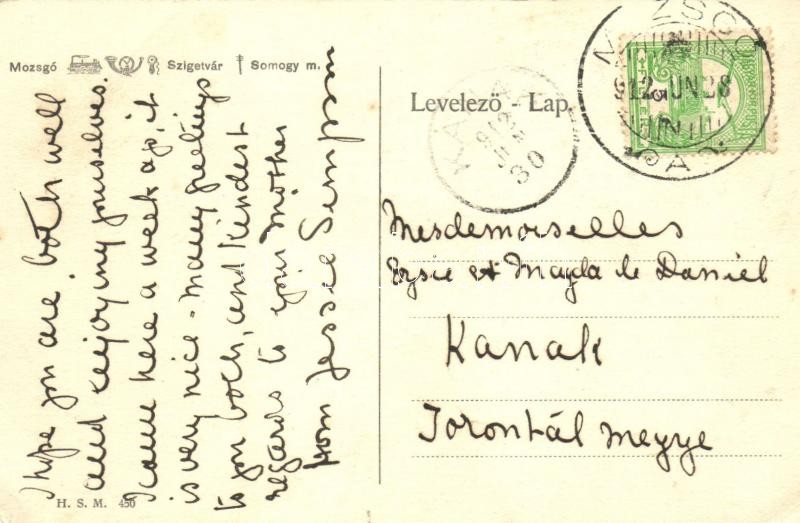 Mozsgó Szigetvár Somogy m.
I hope you are both well
and enjoying yourselves.
I came here a week ago, it
is very nice - many greetings
to you both, and kindest
regards to your mother
from Jessie Simpson
H. S. M. 450
Levelező - Lap.
MOZSGÓ
912 JUN 28
KANAK
912 JUN
30
Mesdemoiselles
et Magda de Daniel
Kanak
Torontál megye